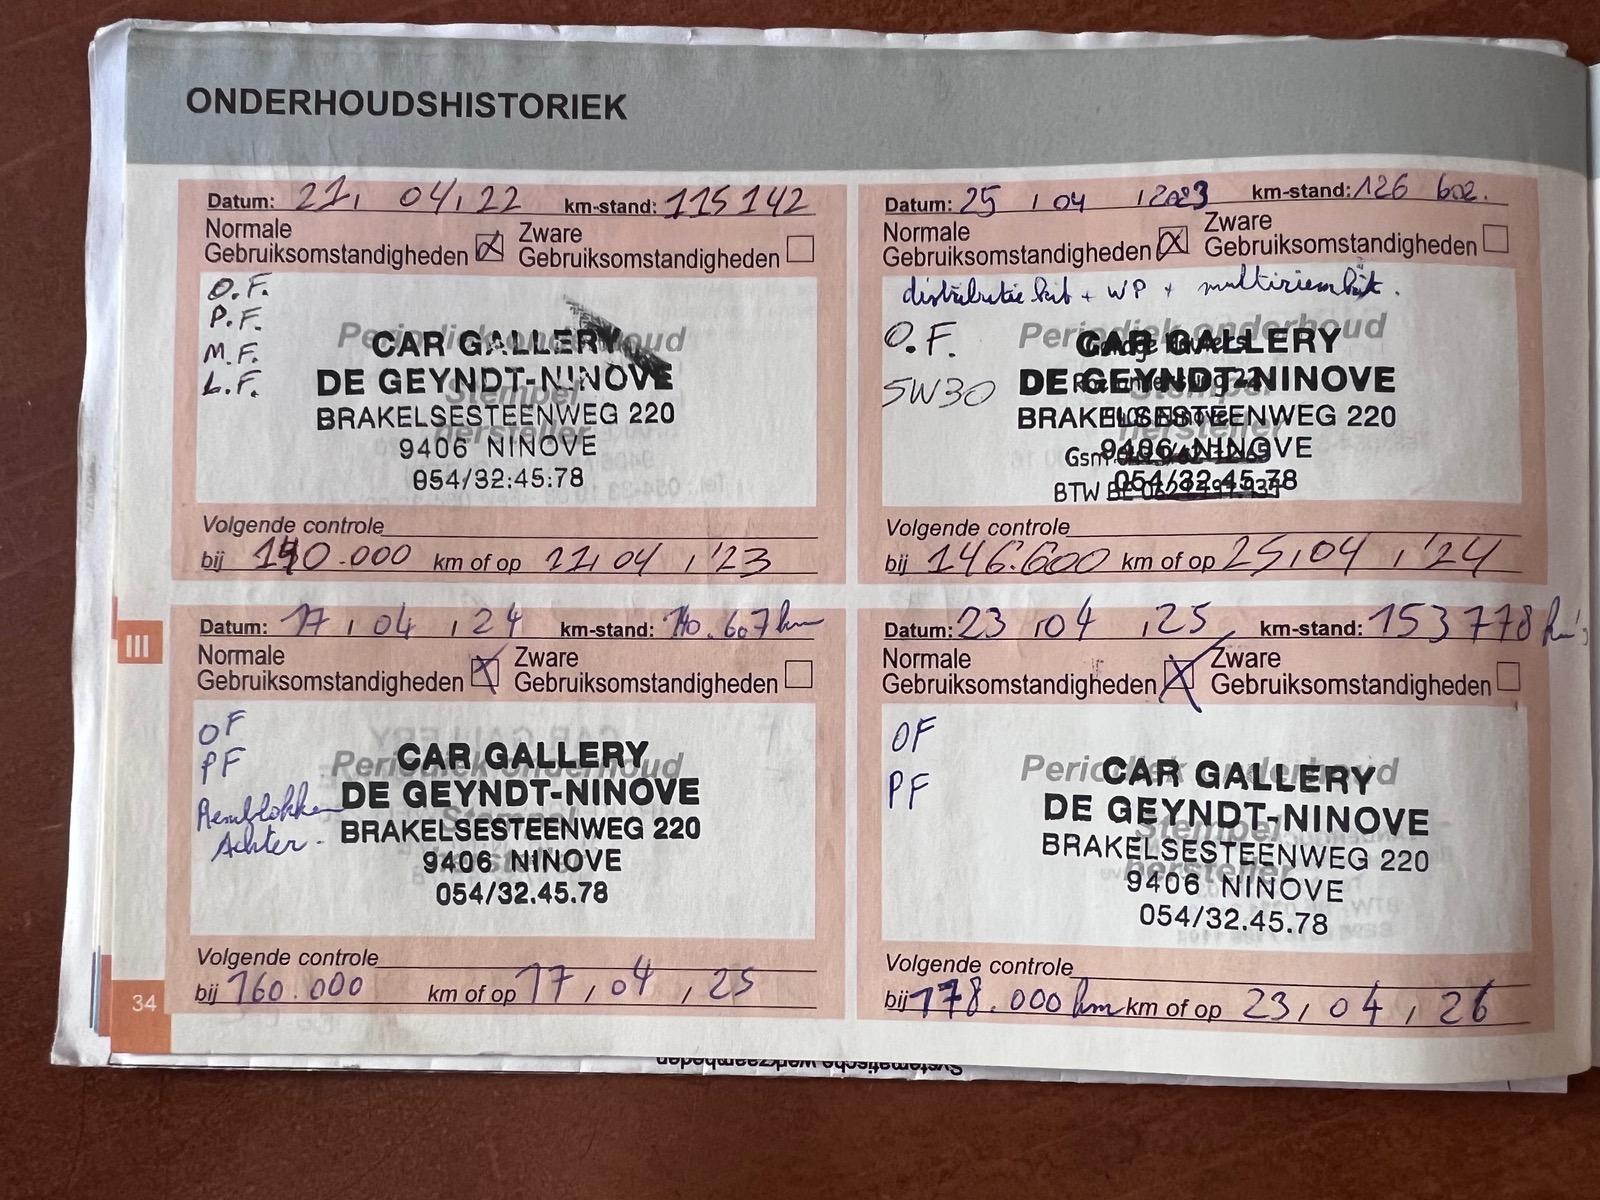 ONDERHOUDSHISTORIEK
Datum: 21, 04, 22 km-stand: 115 142
Normale Gebruiksomstandigheden Zware Gebruiksomstandigheden
O.F.
P.F.
M.F.
L.F.
Periodiek onderhoud
Stempel
hersteller
CAR GALLERY
DE GEYNDT-NINOVE
BRAKELSESTEENWEG 220
9406 NINOVE
054/32:45:78
Volgende controle
bij 140.000 km of op 21, 04, '23
Datum: 25, 04, 2023 km-stand: 126 602.
Normale Gebruiksomstandigheden Zware Gebruiksomstandigheden
distributie kit + WP + multiriemkit.
O.F.
5W30
Periodiek onderhoud
Stempel
hersteller
CAR GALLERY
DE GEYNDT-NINOVE
BRAKELSESTEENWEG 220
9406 NINOVE
054/32.45.78
Gsm
BTW BE
Volgende controle
bij 146.600 km of op 25, 04, '24
III
Datum: 17, 04, 24 km-stand: 140.607 km
Normale Gebruiksomstandigheden Zware Gebruiksomstandigheden
OF
PF
Remblokken
Achter.
Periodiek onderhoud
Stempel
hersteller
CAR GALLERY
DE GEYNDT-NINOVE
BRAKELSESTEENWEG 220
9406 NINOVE
054/32.45.78
Volgende controle
bij 160.000 km of op 17, 04, 25
Datum: 23, 04, 25 km-stand: 153 778 km's
Normale Gebruiksomstandigheden Zware Gebruiksomstandigheden
OF
PF
Periodiek onderhoud
Stempel
hersteller
CAR GALLERY
DE GEYNDT-NINOVE
BRAKELSESTEENWEG 220
9406 NINOVE
054/32.45.78
Volgende controle
bij 178.000 km km of op 23, 04, 26
34
Systematische werkzaamheden